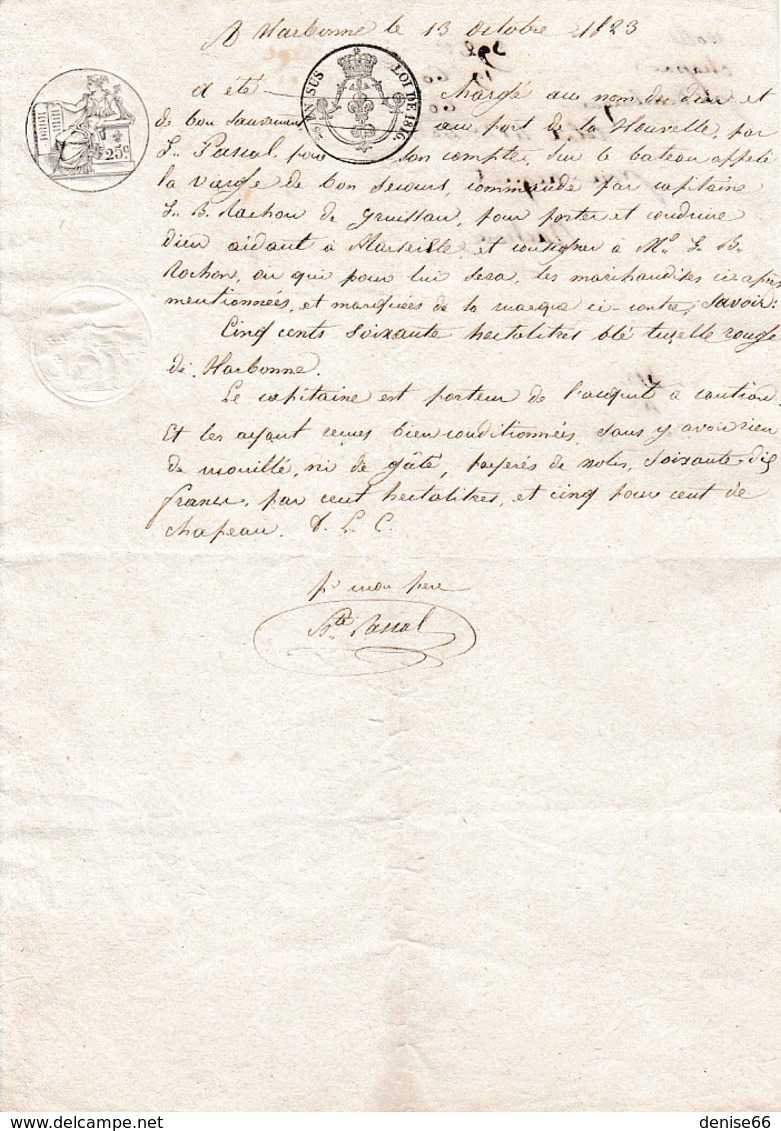 A Narbonne le 13 octobre 1823
EN SUS LOI DE 1816.
25c.
a été chargé au nom de dieu et
de bon sauvement au port de la Nouvelle, par
Sr. Pascal, pour son compte, sur le bateau appelé
la vierge de bon secours, commandé par capitaine
J. B. Rachou de gruissan, pour porter et conduire
dieu aidant à Marseille et consigner à Mr. J. Bte
Rochon, ou qui pour lui sera, les marchandises ci après
mentionnées, et marquées de la marque ci contre, Savoir:
Cinq cents soixante hectolitres blé tuzelle rouge
de Narbonne.
Le capitaine est porteur de l'acquit a caution.
Et les ayant reçues bien conditionnées, sans y avoir rien
de mouillé, ni de gâté, payerés de nolis, soixante-dix
francs, par cent hectolitres, et cinq pour cent de
chapeau. V. L. C.
pr mon père
Bte Pascal
denise66